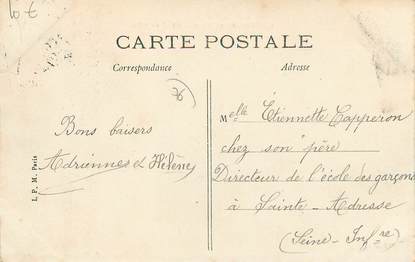 70
CARTE POSTALE
Correspondance
Adresse
76
Bons baisers
Adriennes & Hélène
L. P. M. Paris
Melle Etiennette Capperon
chez son père
Directeur de l'école des garçons
à Sainte-Adresse
(Seine-Infre)